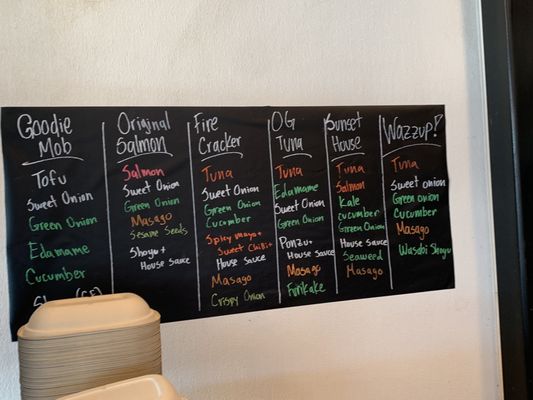 Goodie
Mob
Tofu
Sweet Onion
Green Onion
Edamame
Cucumber
Original
Salmon
Salmon
Sweet Onion
Green Onion
Masago
Sesame Seeds
Shoyu +
House Sauce
Fire
Cracker
Tuna
Sweet Onion
Green Onion
Cucumber
Spicy Mayo +
Sweet Chili +
House Sauce
Masago
Crispy Onion
OG
Tuna
Tuna
Edamame
Sweet Onion
Green Onion
Ponzu +
House Sauce
Masago
Furikake
Sunset
House
Tuna
Salmon
Kale
Cucumber
Green Onion
House Sauce
Seaweed
Masago
Wazzup!
Tuna
Sweet onion
Green onion
Cucumber
Masago
Wasabi Shoyu